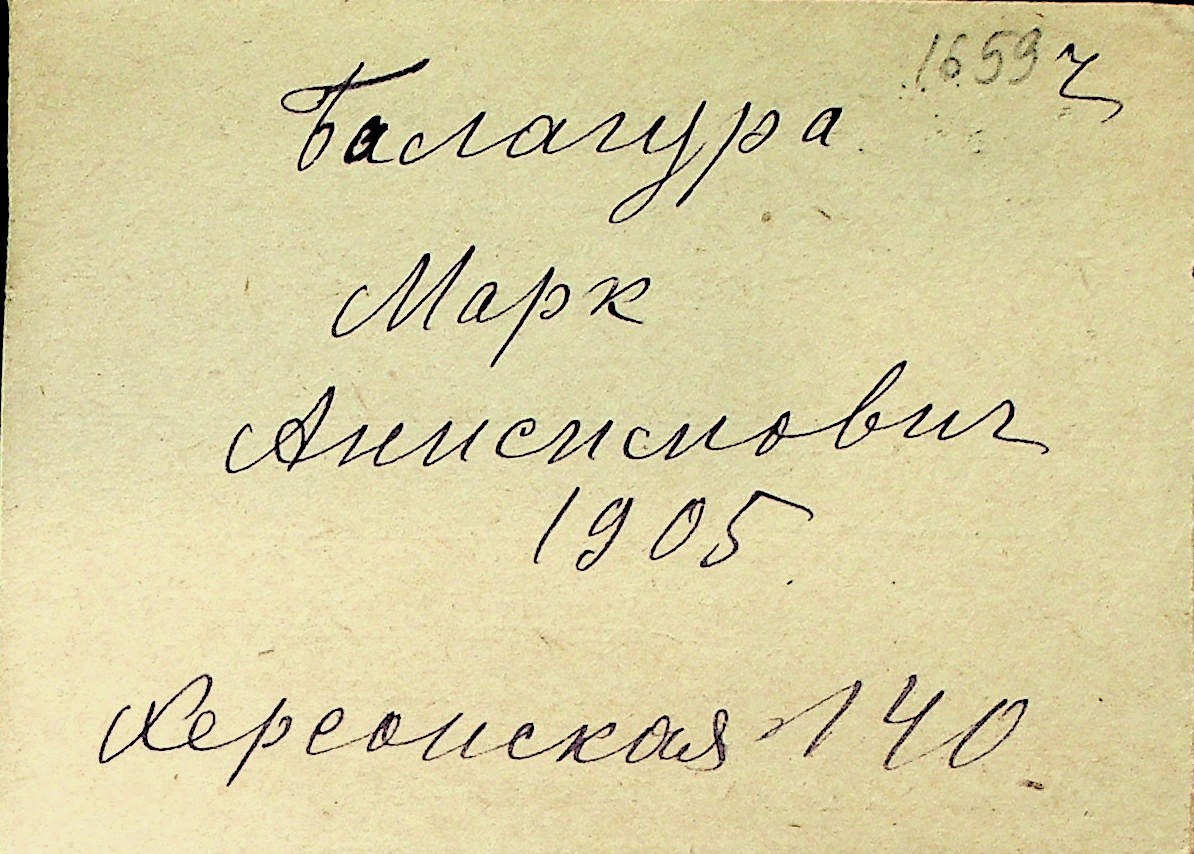 1659 ч
Балагура
Марк
Анисимович
1905
Херсонская 140